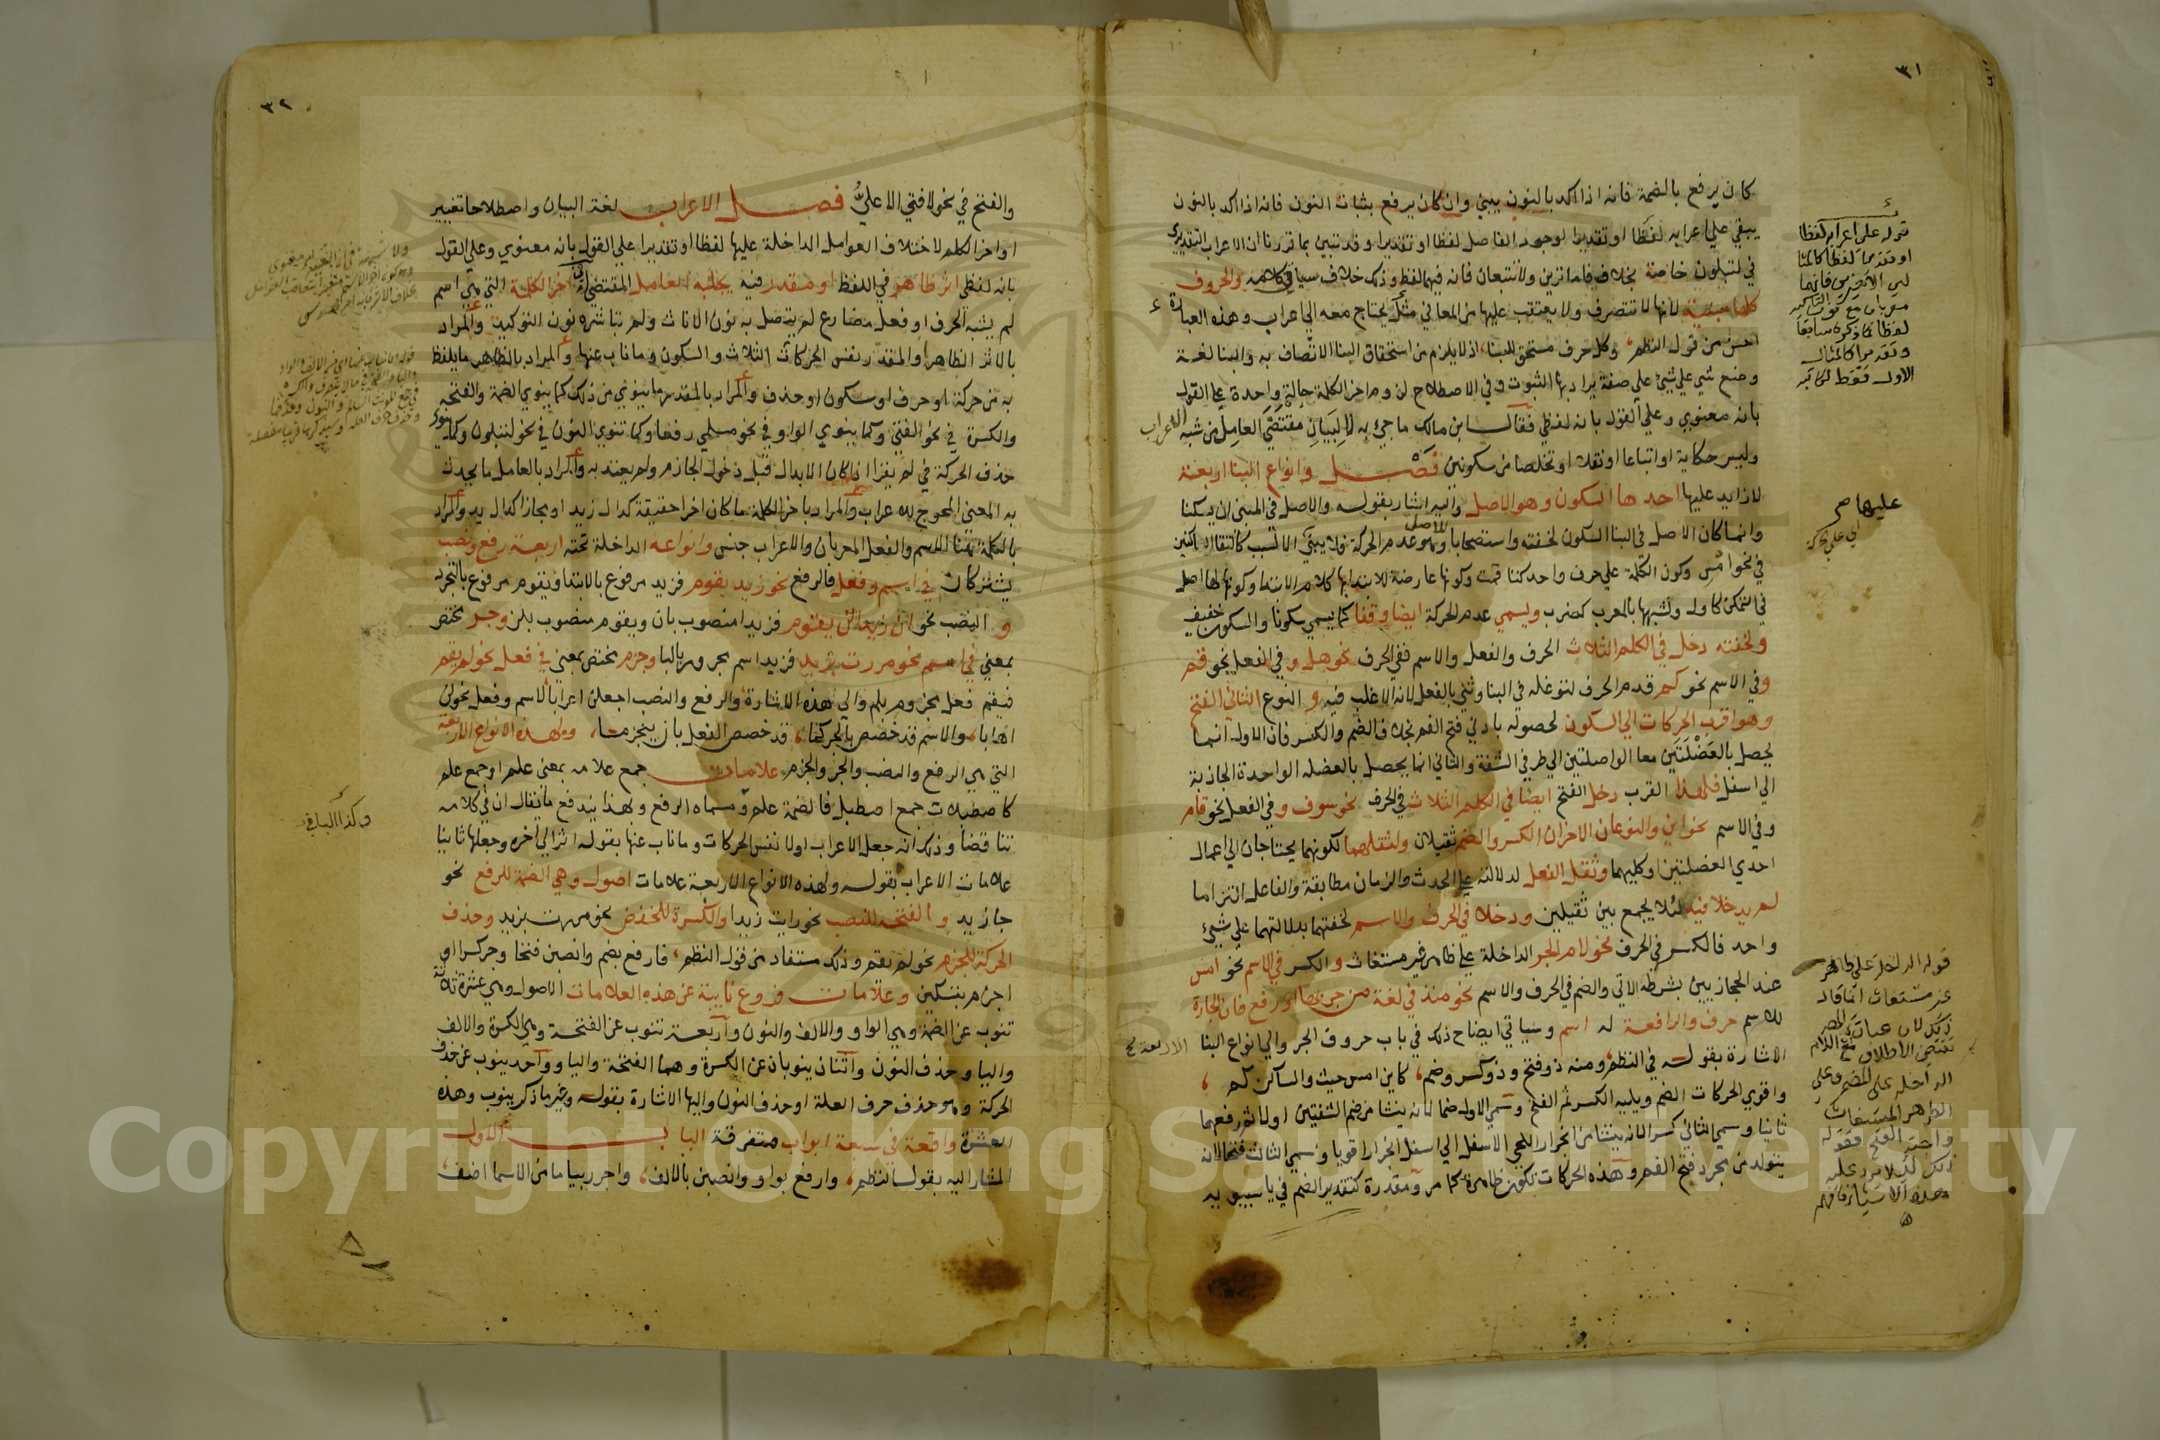 ٣١
كان يرفع بالضمة فانه اذا اكد بالنون يبني وان كان يرفع بثبات النون فانه اذا اكد بالنون
يبقي علي اعرابه لفظا او تقديرا لوجود الفاصل لفظا او تقديرا وقد تبين بما قررنا ان الاعراب التقديري
في لتبلون خاصة بخلاف فاما ترين ولا تتبعان فانه فيهما لفظا وذلك خلاف سياق كلامه والحروف
كلها مبنية لانها لا تتصرف ولا يعتقب عليها من المعاني مثل ما يحتاج معه الي اعراب وهذه العبارة
احسن من قول النظم وكل حرف مستحق للبنا اذ لا يلزم من استحقاق البنا الاتصاف به والبنا لغة
وضع شي علي شي علي صفة يراد بها الثبوت وفي الاصطلاح لزوم اخر الكلمة حالة واحدة علي القول
بانه معنوي وعلي القول بانه لفظي فقال ابن مالك ما جي به لا لبيان مقتضي العامل من شبه الاعراب
وليس حكاية او اتباعا او نقلا او تخلصا من سكونين فصل وانواع البنا اربعة
لا زايد عليها احدها السكون وهو الاصل واليه اشار بقوله والاصل في المبني ان يسكنا
وانما كان الاصل في البنا السكون لخفته واستصحابا للاصل وهو عدم الحركة فلا يبني الا لسبب كالتقا الساكنين
في نحو امس وكون الكلمة علي حرف واحد كتا قمت وكونها عارضة للابتدا بها كلام الابتدا وكونها لها اصل
في التمكن كاول وشبهها بالمعرب كضرب ويسمي عدم الحركة ايضا وقفا كما يسمي سكونا والسكون خفيف
ولخفته دخل في الكلم الثلاث الحرف والفعل والاسم ففي الحرف نحو هل وفي الفعل نحو قم
وفي الاسم نحو كم قدم الحرف لتوغله في البنا وثني بالفعل لانه الاغلب فيه و النوع الثاني الفتح
وهو اقرب الحركات الي السكون لحصوله بادني فتح الفم بخلاف الضم والكسر فان الاول انما
يحصل بالعضلتين معا الواصلتين الي طرفي الشفة والثاني انما يحصل بالعضلة الواحدة الجاذبة
الي اسفل فلهذا القرب دخل الفتح ايضا في الكلم الثلاث في الحرف نحو سوف وفي الفعل نحو قام
وفي الاسم نحو اين والنوعان الاخران الكسر والضم ثقيلان ولثقلهما لكونهما يحتاجان الي اعمال
احدي العضلتين او كليهما وثقل الفعل لدلالته علي الحدث والزمان مطابقة والفاعل التزاما
لم يدخلا فيه لئلا يجمع بين ثقيلين ودخلا في الحرف والاسم لخفتهما بدلالتهما علي شي
واحد فالكسر في الحرف نحو لام الجر الداخلة علي ظاهر غير مستغاث والكسر في الاسم نحو امس
عند الحجازيين بشرطه الاتي والضم في الحرف والاسم نحو منذ في لغة من جر بها او رفع فان الجارة
للاسم حرف والرافعة له اسم وسياتي ايضاح ذلك في باب حروف الجر والي انواع البنا
الاشارة بقوله في النظم ومنه ذو فتح وذو كسر وضم كاين امس حيث والساكن كم
واقوي الحركات الضم ويليه الكسر ثم الفتح وسمي الاول ضما لانه ينشا من ضم الشفتين اولا ثم رفعهما
ثانيا وسمي الثاني كسرا لانه ينشا من انجرار اللحي الاسفل الي اسفل انجرارا قويا وسمي الثالث فتحا لانه
يتولد من مجرد فتح الفم وهذه الحركات تكون ظاهرة كما مر ومقدرة كتقدير الضم في يا سيبويه
قوله علي اعرابه لفظا
او تقديرا لفظا كالمثا
لين الاخيرين فانهما
معربان مع نون التاكيد
لفظا كما ذكره سابقا
وتقديرا كالمثال
الاول فقط
عليها صح
اي علي حركة
قوله الداخلة علي ظاهر
غير مستغاث انما قال
ذلك لان عبارة المصر
تقتضي الاطلاق مع ان اللام
الداخلة علي المضمر وعلي
الظاهر المستغاث
واجبة الفتح فقوله
ذلك لئلا يرد عليه
هذه الاشيا فافهم
الاربعة صح
٣٢
والفتح في نحو لا فتي الا علي فصل الاعراب لغة البيان واصطلاحا تغيير
اواخر الكلم لاختلاف العوامل الداخلة عليها لفظا او تقديرا علي القول بانه معنوي وعلي القول
بانه لفظي اثر ظاهر في اللفظ او مقدر فيه يجلبه العامل المقتضي له في اخر الكلمة التي هي اسم
لم يشبه الحرف او فعل مضارع لم يتصل به نون الاناث ولم تباشره نون التوكيد والمراد
بالاثر الظاهر او المقدر نفس الحركات الثلاث والسكون وما ناب عنها والمراد بالظاهر ما يلفظ
به من حركة او حرف او سكون او حذف والمراد بالمقدر ما ينوي من ذلك كما ينوي الضمة والفتحة
والكسرة في نحو الفتي وكما ينوي الواو في نحو مسلمي رفعا وكما تنوي النون في نحو لتبلون وكما ينوي
حذف الحركة في لم يقرا اذا كان الابدال قبل دخول الجازم ولم يعتد به والمراد بالعامل ما يحدث
به المعني المحوج للاعراب والمراد باخر الكلمة ما كان اخرا حقيقة كدال زيد او مجازا كدال يد والمراد
بالكلمة هنا الاسم والفعل المعربان والاعراب جنس وانواعه الداخلة تحته اربعة رفع ونصب
يشتركان في اسم وفعل فالرفع نحو زيد يقوم فزيد مرفوع بالابتدا ويقوم مرفوع بالتجرد
و النصب نحو ان زيدا لن يقوم فزيدا منصوب بان ويقوم منصوب بلن وجر يختص
بمعني في اسم نحو مررت بزيد فزيد اسم مجرور بالبا وجزم يختص بمعني في فعل نحو لم يقم
فيقم فعل مجزوم بلم والي هذه الاشارة والرفع والنصب اجعلن اعرابا لاسم وفعل نحو لن
اهابا والاسم قد خصص بالجر كما قد خصص الفعل بان ينجزما ولهذه الانواع الاربعة
التي هي الرفع والنصب والجر والجزم علامات جمع علامة بمعني علم او جمع علم
كاصطبلات جمع اصطبل فالضمة علم ومسماه الرفع وبهذا يندفع ما يقال ان في كلامه
تناقضا وذلك انه جعل الاعراب اولا نفس الحركات وما ناب عنها بقوله اثر الي اخره وجعلها ثانيا
علامات الاعراب بقوله ولهذه الانواع الاربعة علامات اصول وهي الضمة للرفع نحو
جا زيد و الفتحة للنصب نحو رايت زيدا والكسرة للخفض نحو مررت بزيد وحذف
الحركة للجزم نحو لم يقم وذلك مستفاد من قول النظم فارفع بضم وانصبن فتحا وجر كسرا او
اجزم بتسكين وعلامات فروع نايبة عن هذه العلامات الاصول وهي عشرة ثلاثة
تنوب عن الضمة وهي الواو والالف والنون واربعة تنوب عن الفتحة وهي الكسرة والالف
واليا وحذف النون واثنان ينوبان عن الكسرة وهما الفتحة واليا وواحد ينوب عن حذف
الحركة وهو حذف حرف العلة او حذف النون واليها الاشارة بقوله وغير ما ذكر ينوب وهذه
العشرة واقعة في سبعة ابواب متفرقة الباب الاول
المشار اليه بقول النظم وارفع بواو وانصبن بالالف واجرر بيا ما من الاسما اضف
وكذا الباقي
Copyright © King Saud University